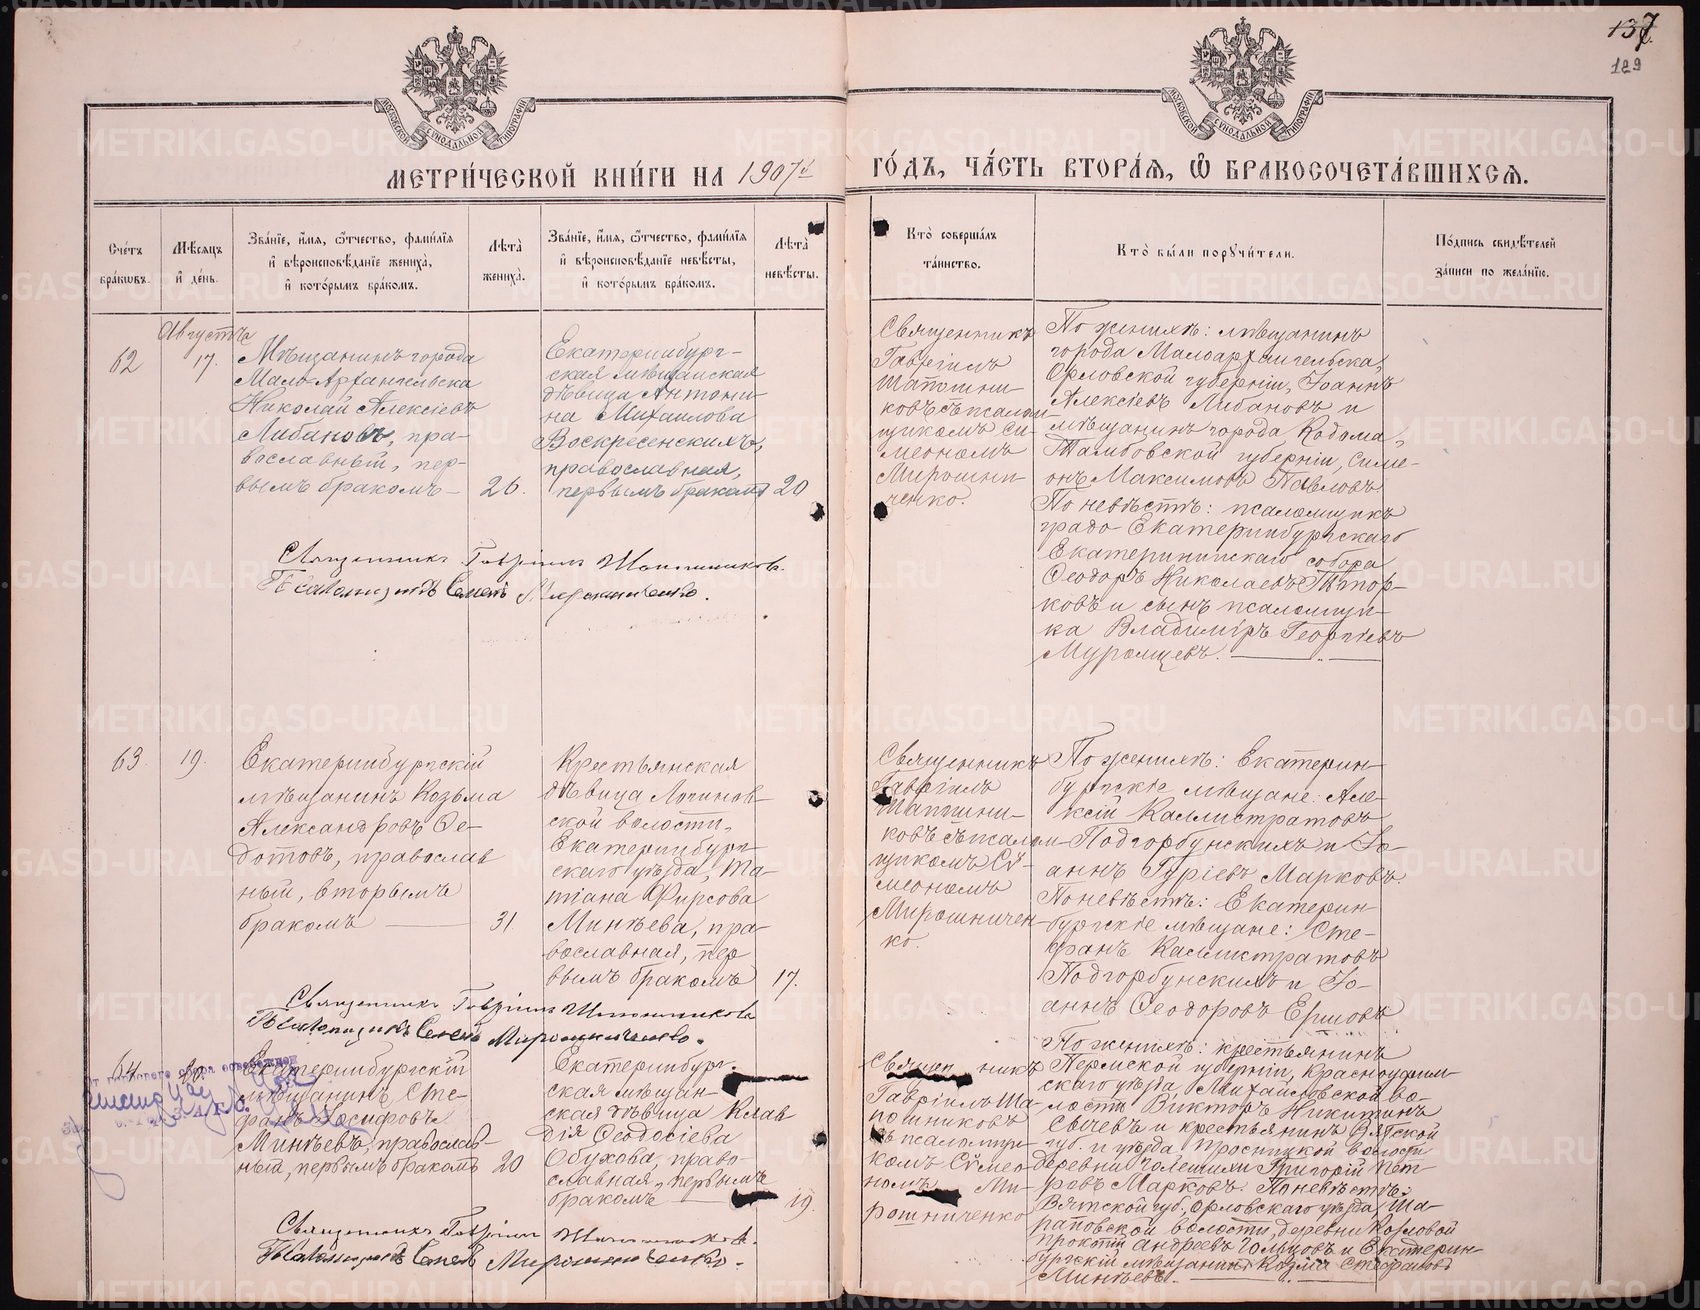 137
129
МЕТРИ́ЧЕСКОЙ КНИ́ГИ НА 1907й ГО́ДЪ, ЧА́СТЬ ВТОРА́Я, Ѡ БРАКОСОЧЕТА́ВШИХСЯ.
Сче́тъ бра́ковъ.
Мѣ́сяцъ и де́нь.
Зва́нїе, и́мя, ѻ́тчество, фами́лїя и вѣроисповѣ́данїе жениха̀, и кото́рымъ бра́комъ.
Лѣта̀ жениха̀.
Зва́нїе, и́мя, ѻ́тчество, фами́лїя и вѣроисповѣ́данїе невѣ́сты, и кото́рымъ бра́комъ.
Лѣта̀ невѣ́сты.
Кто̀ соверша́лъ та́инство.
Кто̀ бы́ли поручи́тели.
По́дпись свидѣ́телей за́писи по жела́нїю.
Августъ
62
17.
Мѣщанинъ города
Мало-Архангельска
Николай Алексіевъ
Либановъ, пра-
вославный, пер-
вымъ бракомъ
26.
Екатеринбург-
ская мѣщанская
дѣвица Антони-
на Михаилова
Воскресенскихъ,
православная,
первымъ бракомъ
20
Священникъ
Гавріилъ
Шапошни-
ковъ съ псалом-
щикомъ Си-
меономъ
Мирошни-
ченко.
По женихѣ: мѣщанинъ
города Малоархангельска,
Орловской губерніи, Іоаннъ
Алексіевъ Либановъ и
мѣщанинъ города Кадома,
Тамбовской губерніи, Симе-
онъ Максимовъ Павловъ
По невѣстѣ: псаломщикъ
градо-Екатеринбургскаго
Екатерининскаго собора
Ѳеодоръ Николаевъ Топор-
ковъ и сынъ псаломщи-
ка Владиміръ Георгіевъ
Муромцевъ.
Священникъ Гавріилъ Шапошниковъ.
Псаломщикъ Семенъ Мирошниченко.
63.
19.
Екатеринбургскій
мѣщанинъ Козьма
Александровъ Ѳе-
дотовъ, православ
ный, вторымъ
бракомъ
31
Крестьянская
дѣвица Логинов-
ской волости,
Екатеринбург-
скаго уѣзда, Та-
тіана Фирсова
Минѣева, пра-
вославная, пер
вымъ бракомъ
17.
Священникъ
Гавріилъ
Шапошни-
ковъ съ псалом-
щикомъ Сѵ-
меономъ
Мирошничен-
ко.
По женихѣ: Екатерин-
бургскіе мѣщане: Але-
ксій Каллистратовъ
Подгорбунскихъ и Іо-
аннъ Гуріевъ Марковъ.
По невѣстѣ: Екатерин-
бургскіе мѣщане: Сте-
фанъ Каллистратовъ
Подгорбунскихъ и Іо-
аннъ Ѳеодоровъ Ершовъ
Священникъ Гавріилъ Шапошниковъ
Псаломщикъ Семенъ Мирошниченко.
64.
Екатеринбургскій
мѣщанинъ Сте-
фанъ Іосифовъ
Минѣевъ, православ-
ный, первымъ бракомъ
20
Екатеринбург-
ская мѣщан-
ская дѣвица Клав
дія Ѳеодосіева
Обухова, право-
славная, первымъ
бракомъ
19.
Священникъ
Гавріилъ Ша-
пошниковъ
съ псаломщи-
комъ Сѵмео-
номъ Ми-
рошниченко
По женихѣ: крестьянинъ
Пермской губерніи, Красноуфим-
скаго уѣзда, Михайловской во-
лости Викторъ Никитинъ
Сычевъ и крестьянинъ Вятской
губ. и уѣзда Троицкой волости
деревни Григорій Пет-
ровъ Марковъ. По невѣстѣ:
Вятской губ., Орловскаго уѣзда, Ша-
раповской волости, деревни Козловой
Прокопій Андреевъ Гольцовъ и Екатерин-
бургскій мѣщанинъ Козма Стефановъ
Минѣевъ.
Священникъ Гавріилъ Шапошниковъ.
Псаломщикъ Семенъ Мирошниченко.
METRIKI.GASO-URAL.RU